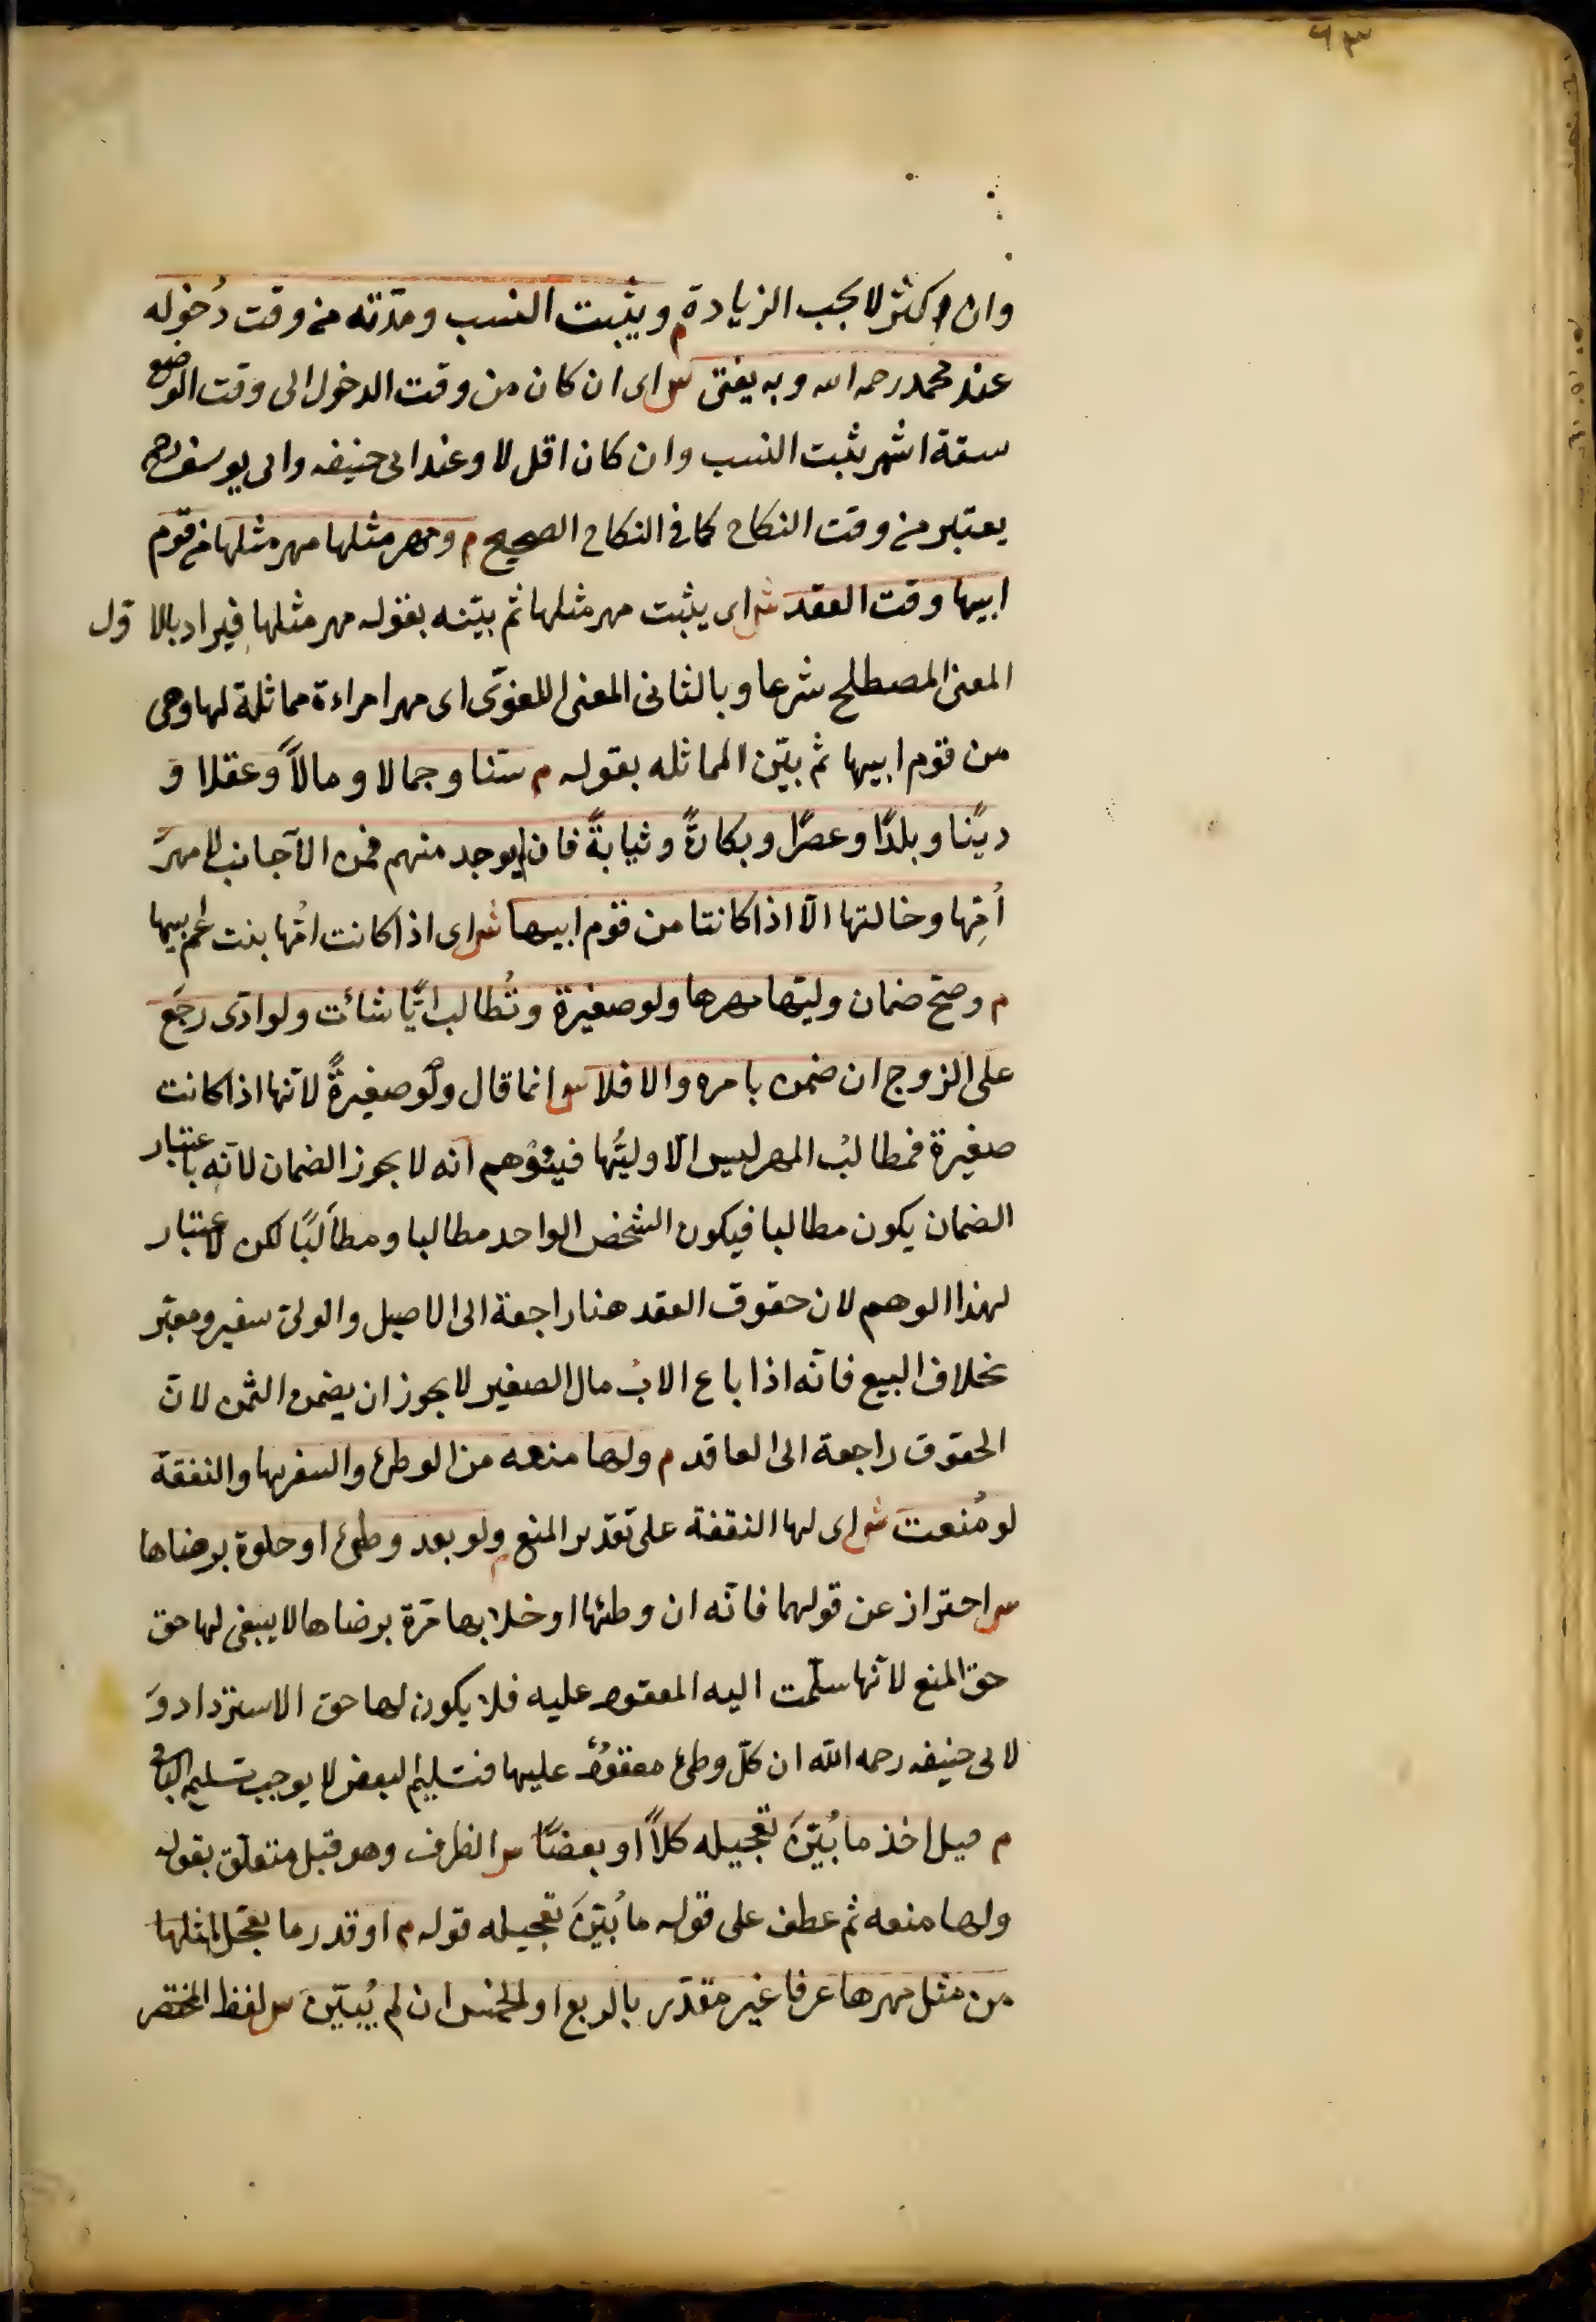 ٦٣
وان اكثر لا يجب الزيادة م ويثبت النسب ومدّته من وقت دُخوله
عند محمد رحمه الله وبه يفتى ش اى ان كان من وقت الدخول الى وقت الوضع
ستة اشهر يثبت النسب وان كان اقل لا وعند ابى حنيفه وابى يوسف رح
يعتبر من وقت النكاح كما فى النكاح الصحيح م ومهر مثلها مهر مثلها من قوم
ابيها وقت العقد ش اى يثبت مهر مثلها ثم بيّنه بقوله مهر مثلها فيراد بالاول
المعنى المصطلح شرعا وبالثانى المعنى اللغوىّ اى مهر امراءة مماثلة لها وهى
من قوم ابيها ثم بيّن المماثله بقوله م سنّا وجمالا ومالاً وعقلا وَ
دينًا وبلدًا وعصرًا وبكارةً وثيابةً فان لم يوجد منهم فمن الآجانب لا مهرَ
أمِّها وخالتها الّا اذا كانتا من قوم ابيها ش اى اذا كانت امّها بنت عم ابيها
م وصحّ ضمان وليّها مهرها ولو صغيرة وتُطالب ايًّا شائت ولو ادّى رجَع
على الزوج ان ضمن بامره والا فلا ش انما قال ولَو صغيرةً لانّها اذا كانت
صغيرة فمطالبُ المهر ليس الّا وليُّها فيتوهم انّه لا يجوز الضمان لانّه باعتبار
الضمان يكون مطالبا فيكون الشخص الواحد مطالبا ومطالَبًا لكن لا اعتبار
لهذا الوهم لان حقوق العقد هنا راجعة الى الاصيل والولىّ سفير ومعبّر
بخلاف البيع فانّه اذا باع الابُ مال الصغير لا يجوز ان يضمن الثمن لانّ
الحقوق راجعة الى العاقد م ولها منعه من الوطئ والسفر بها والنفقة
لو مُنعت ش اى لها النفقة على تقدير المنع م ولو بعد وطئ او خلوة برضاها
ش احتراز عن قولهما فانّه ان وطئها او خلا بها مرّة برضاها لا يبقى لها حق
حق المنع لانّها سلّمت اليه المعقود عليه فلا يكون لها حق الاسترداد وَ
لابى حنيفه رحمه الله ان كلّ وطئ معقودٌ عليها فتسليم البعض لا يوجب تسليم الباقى
م قبل اخذ ما بُيّنَ تعجيله كلاً او بعضًا ش الظرف وهو قبل متعلّق بقوله
ولها منعه ثم عطف على قوله ما بُيّنَ تعجيله قوله م او قدر ما يعجّل لمثلها
من مثل مهرها عرفا غير مقدّر بالربع او الخمس ان لم يُبيّن ش لفظ المختصر